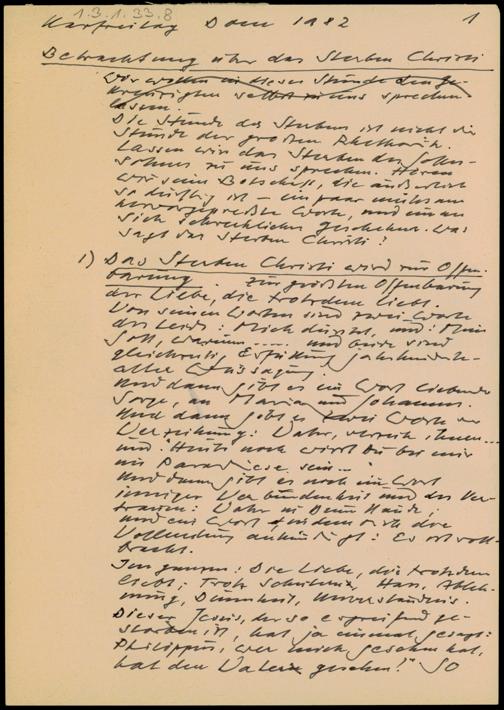 1.3.1.33.8
Karfreitag Dom 1982 1
Betrachtung über das Sterben Christi
Wir wollen in dieser Stunde den Ge-
kreuzigten selbst zu uns sprechen
lassen.
Die Stunde des Sterbens ist nicht die
Stunde der großen Rhetorik.
Lassen wir das Sterben des Gottes-
sohnes zu uns sprechen. Hören
wir seine Botschaft, die äußerlich
so dürftig ist – ein paar mühsam
hervorgepreßte Worte, und ein an
sich schreckliches Geschehen. Was
sagt das Sterben Christi?
1) Das Sterben Christi wird zur Offen-
barung. Zur größten Offenbarung
der Liebe, die trotzdem liebt.
Von seinen Worten sind zwei Worte
des Leids: Mich dürstet, und: Mein
Gott, warum .... und beide sind
gleichzeitig Erfüllung jahrhunderte-
alter Aussagung.
Und dann gibt es ein Wort liebender
Sorge, an Maria und Johannes.
Und dann gibt es zwei Worte der
Verzeihung: Vater, verzeih ihnen...
und: Heute noch wirst du bei mir
im Paradiese sein...
Und dann gibt es noch ein Wort
inniger Verbundenheit und des Ver-
trauens: Vater in Deine Hände;
und ein Wort, in dem sich die
Vollendung ankündigt: Es ist voll-
bracht.
Im ganzen: Die Liebe, die trotzdem
liebt; Trotz Schmerz, Hass, Ableh-
nung, Dummheit, Unverständnis.
Dieser Jesus, der so ergreifend ge-
storben ist, hat ja einmal gesagt:
Philippus, wer mich gesehen hat,
hat den Vater gesehen!" So